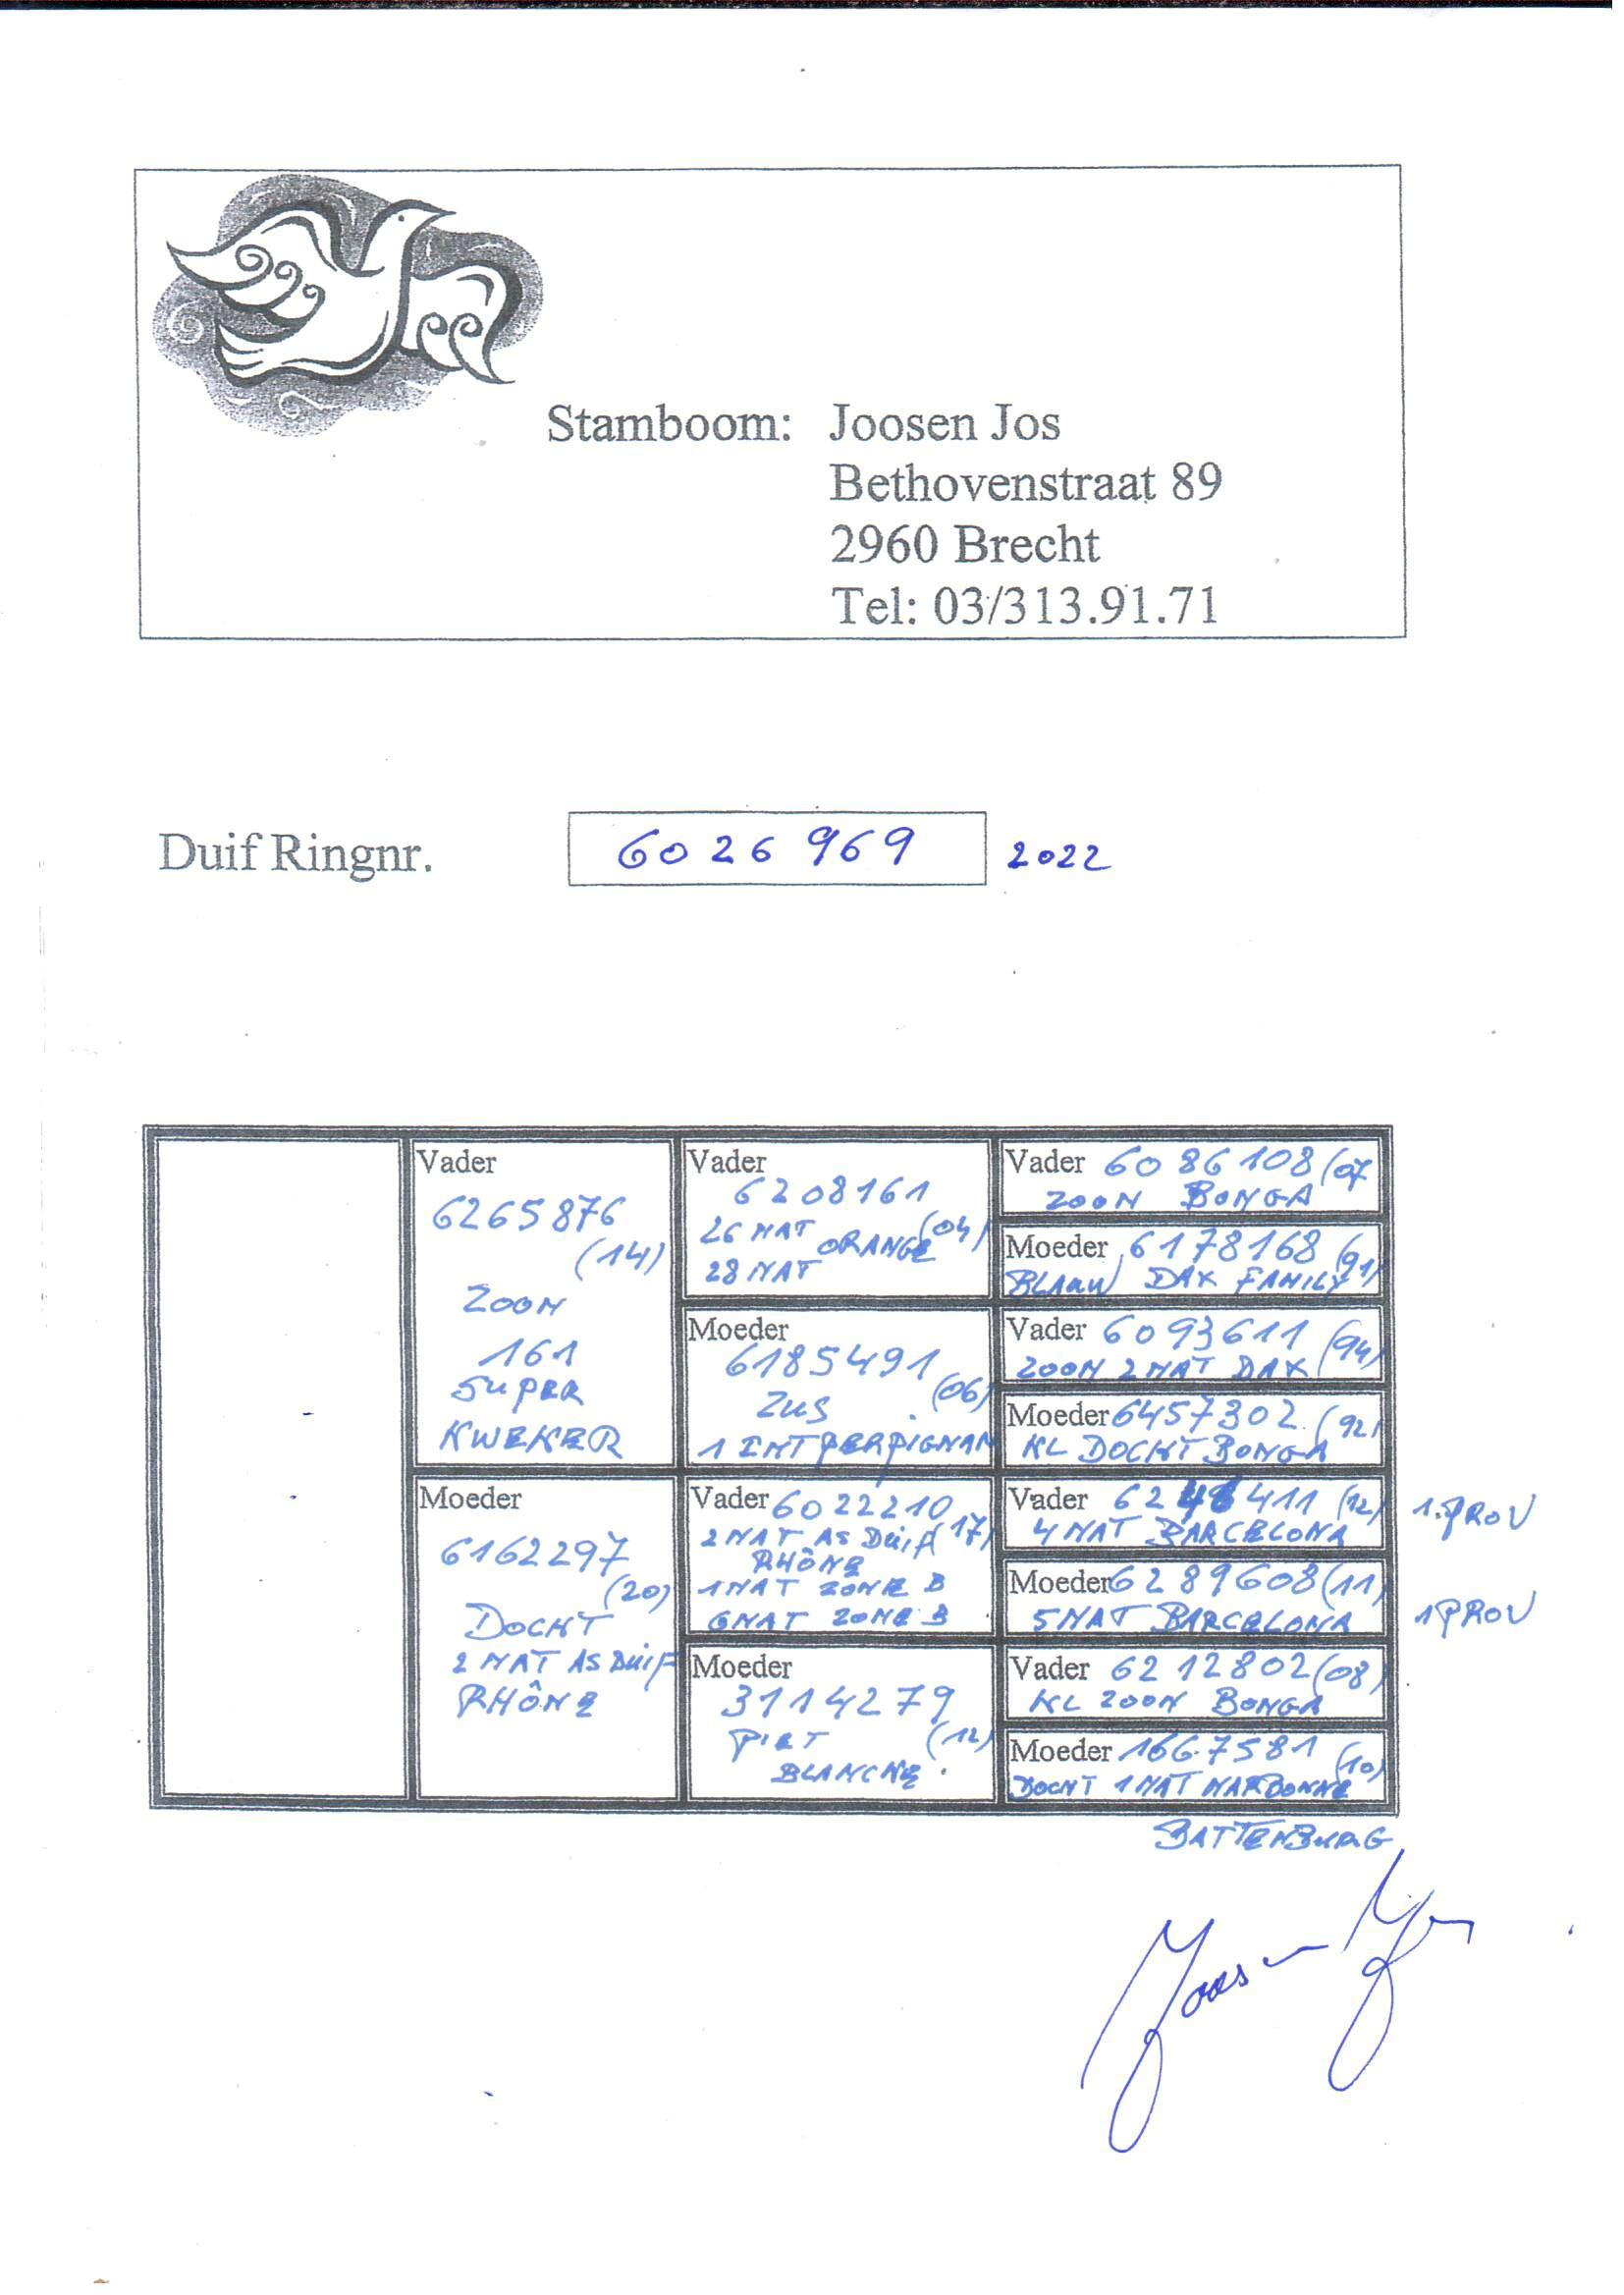 Stamboom: Joosen Jos
Bethovenstraat 89
2960 Brecht
Tel: 03/313.91.71
Duif Ringnr. 6026969 2022
Vader
6265876
(14)
ZOON
161
SUPER
KWEKER
Moeder
6162297
(20)
DOCHT
2 NAT AS DUIF
RHÔNE
Vader
6208161
26 NAT ORANGE (04)
28 NAT
Moeder
6185491
(06)
ZUS
1 INT PERPIGNAN
Vader 6022210
2 NAT AS DUIF (17)
RHÔNE
1 NAT ZONE B
6NAT ZONE B
Moeder
3114279
PIET (12)
BLANCHE.
Vader 6086108 (07
ZOON BONGA
Moeder 6178168 (91)
BLAUW DAX FAMILY
Vader 6093611 (94)
ZOON 2 NAT DAX
Moeder 6457302 (92)
KL DOCHT BONGA
Vader 6246411 (12) 1.PROV
4 NAT BARCELONA
Moeder 6289608 (11) 1PROV
5 NAT BARCELONA
Vader 6212802 (08)
KL ZOON BONGA
Moeder 1667581 (10)
DOCHT 1 NAT NARBONNE
BATTENBURG
Joosen Jos